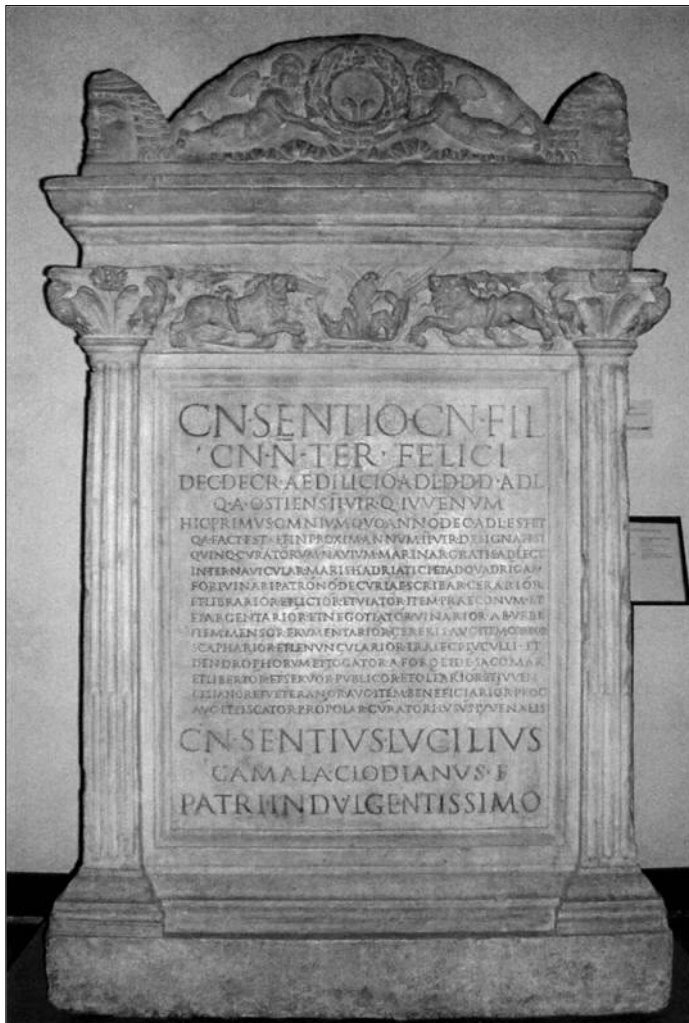 CN·SENTIO·CN·FIL
CN·N̄·TER·FELICI
DEC·DECR·AEDILICIO·ADL·D·D·D·ADL
Q·A·OSTIENS·II·VIR·Q·IUVENUM
HIC PRIMUS OMNIUM QUO ANNO DEC ADL EST ET
Q·A·FACT EST ET IN PROXIM ANNUM II VIR DESIGNAT EST
QUINQ·CURATORUM NAVIUM MARINAR GRATIS ADLECT
INTER NAVICULAR MARIS HADRIATICI ET AD QUADRIGAM
FORI VINARI PATRONO DECURIAE SCRIBAR CERARIOR
ET LIBRARIOR ET LICTOR ET VIATOR ITEM PRAECONUM ET
ARGENTARIOR ET NEGOTIATOR VINARIOR AB URBE
ITEM MENSOR FRUMENTARIOR CERERIS AUG ITEM CORPOR
SCAPHARIOR ET LENUNCULARIOR TRAIECT LUCULLI ET
DENDROPHORUM ET TOGATOR A FORO ET DE SACOMAR
ET LIBERTOR ET SERVOR PUBLICOR ET OLEARIOR ET IUVEN
CISIANOR ET VETERANOR AUG ITEM BENEFICIARIOR PROC
AUG ET PISCATOR PROPOLAR CURATORI LUSUS IUVENALIS
CN·SENTIVS LVCILIVS
GAMALA·CLODIANVS·F
PATRI INDVLGENTISSIMO